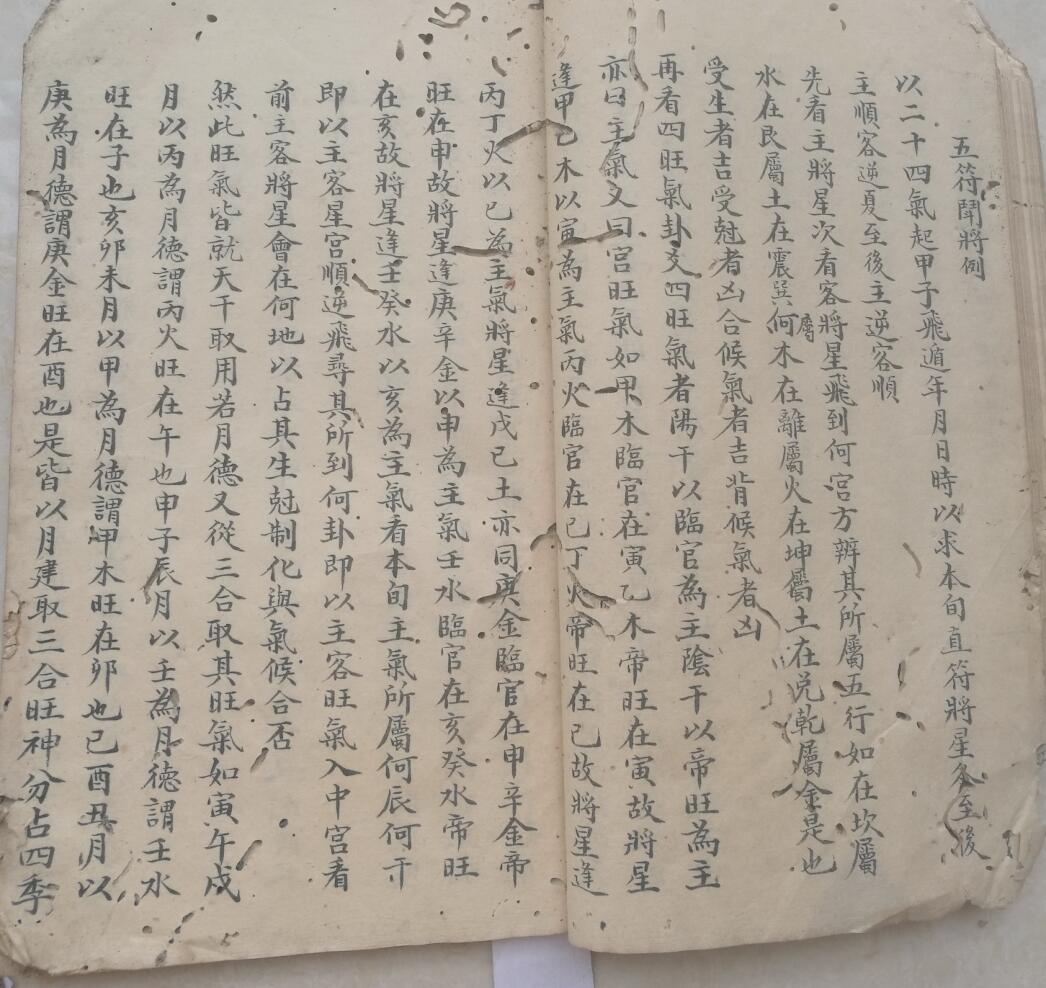 五符鬪將例
以二十四氣起甲子飛遁年月日時以求本旬直符將星冬至後
主順客逆夏至後主逆客順
先看主將星次看客將星飛到何宮方辨其所屬五行如在坎屬
水在艮屬土在震巽何屬木在離屬火在坤屬土在兑乾屬金是也
受生者吉受尅者凶合候氣者吉背候氣者凶
再看四旺氣卦爻四旺氣者陽干以臨官為主陰干以帝旺為主
亦曰主氣又曰宮旺氣如甲木臨官在寅乙木帝旺在寅故將星
逢甲乙木以寅為主氣丙火臨官在巳丁火帝旺在巳故將星逢
丙丁火以巳為主氣將星逢戊己土亦同庚金臨官在申辛金帝
旺在申故將星逢庚辛金以申為主氣壬水臨官在亥癸水帝旺
在亥故將星逢壬癸水以亥為主氣看本旬主氣所屬何辰何干
即以主客星宮順逆飛尋其所到何卦即以主客旺氣入中宮看
前主客將星會在何地以占其生尅制化與氣候合否
然此旺氣皆就天干取用若月德又從三合取其旺氣如寅午戌
月以丙為月德謂丙火旺在午也申子辰月以壬為月德謂壬水
旺在子也亥卯未月以甲為月德謂甲木旺在卯也巳酉丑月以
庚為月德謂庚金旺在酉也是皆以月建取三合旺神分占四季